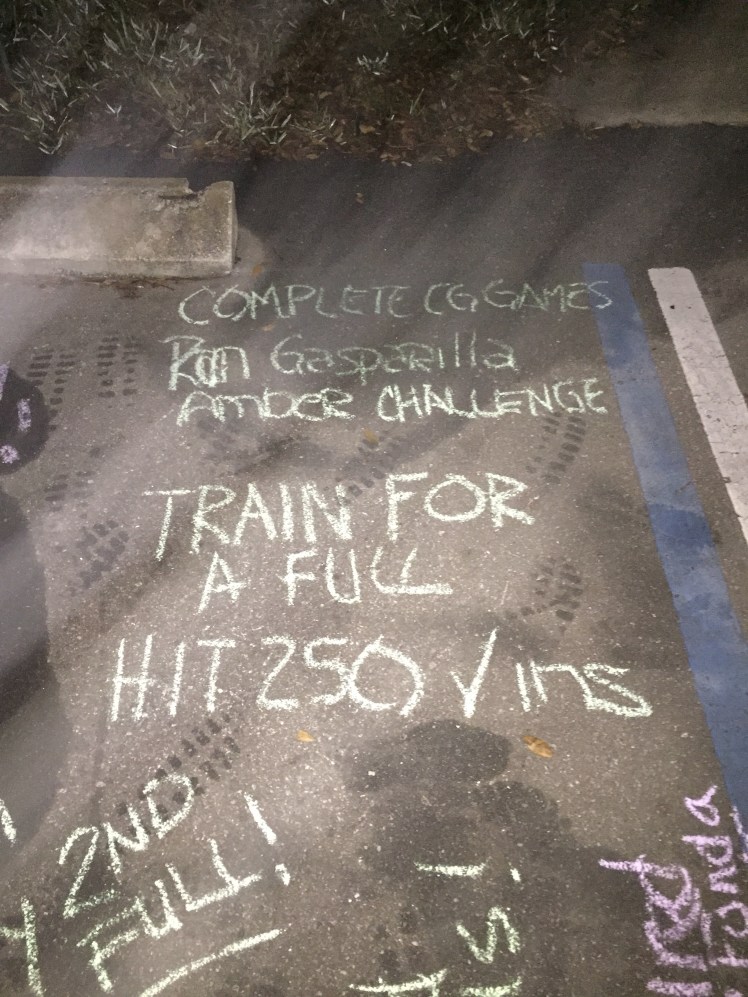 COMPLETE CG GAMES
Run Gasparilla
AMBER CHALLENGE
TRAIN FOR
A FULL
HIT 250 √ ins
2ND
FULL!